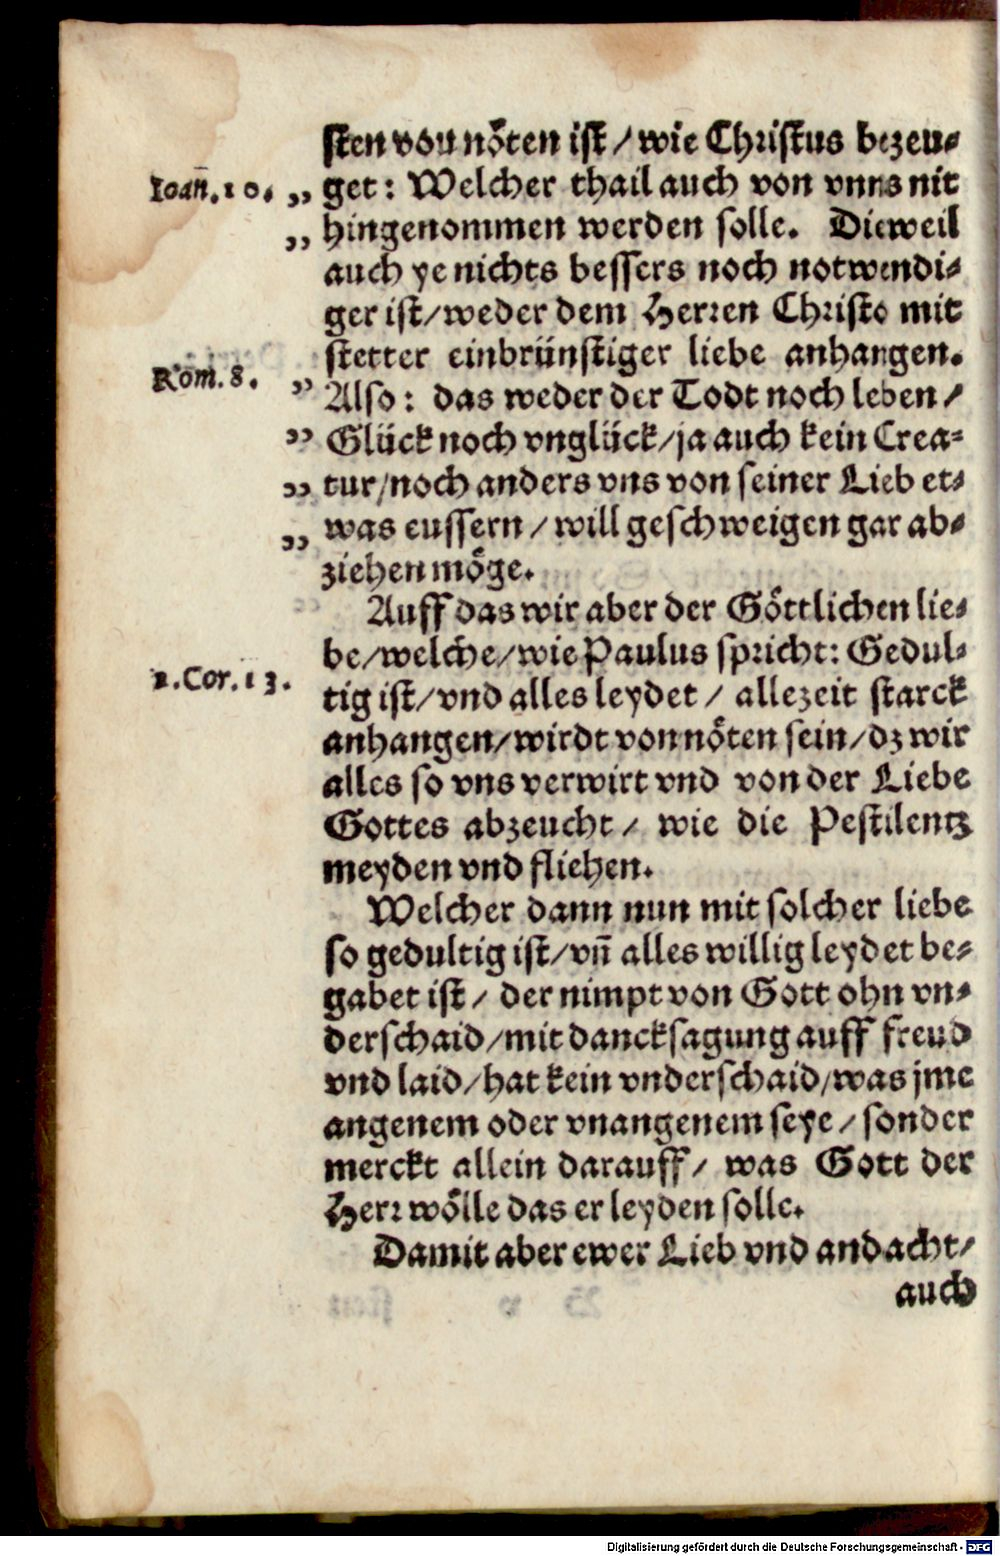 sten von nöten ist / wie Christus bezeu-
Ioañ. 10. ,, get: Welcher thail auch von vnns nit
,, hingenommen werden solle. Dieweil
auch ye nichts bessers noch notwendi-
ger ist / weder dem Herren Christo mit
stetter einbrünstiger liebe anhangen.
Rom. 8. ,, Also: das weder der Todt noch leben /
,, Glück noch vnglück / ja auch kein Crea-
,, tur / noch anders vns von seiner Lieb et-
,, was eussern / will geschweigen gar ab-
ziehen möge.
Auff das wir aber der Göttlichen lie-
be / welche / wie Paulus spricht: Gedul-
1. Cor. 13. tig ist / vnd alles leydet / allezeit starck
anhangen / wirdt von nöten sein / dz wir
alles so vns verwirt vnd von der Liebe
Gottes abzeucht / wie die Pestilentz
meyden vnd fliehen.
Welcher dann nun mit solcher liebe
so gedultig ist / vñ alles willig leydet be-
gabet ist / der nimpt von Gott ohn vn-
derschaid / mit dancksagung auff freud
vnd laid / hat kein vnderschaid / was jme
angenem oder vnangenem seye / sonder
merckt allein darauff / was Gott der
Herr wölle das er leyden solle.
Damit aber ewer Lieb vnd andacht /
auch
Digitalisierung gefördert durch die Deutsche Forschungsgemeinschaft - DFG